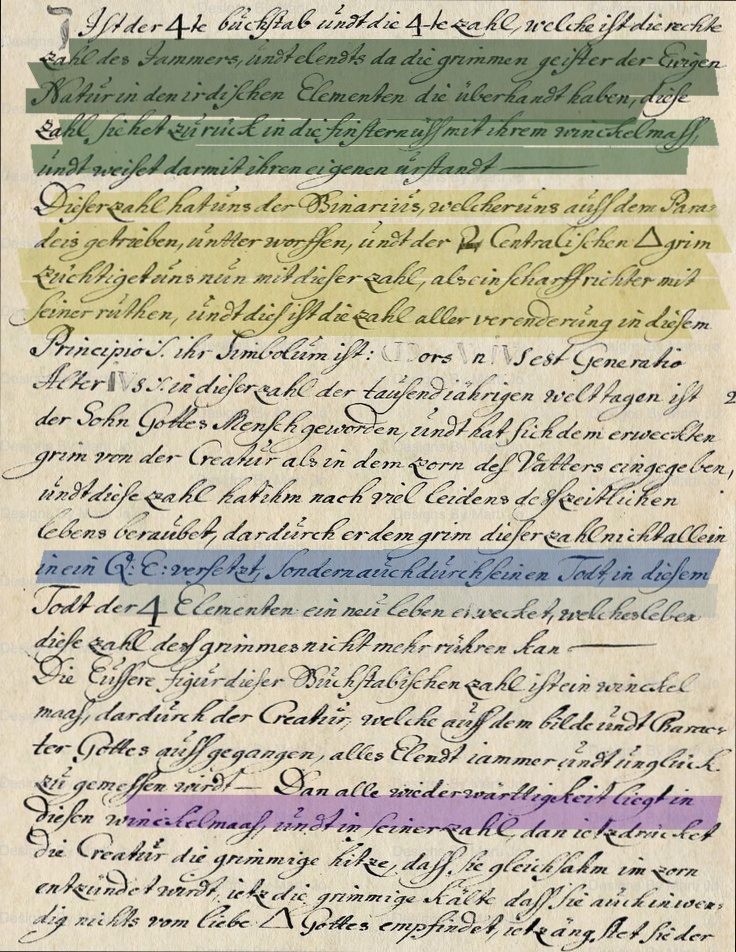 Ist der 4te büchstab ündt die 4-te zahl, welche ist die rechte
zahl des Jammers, ündt elendts da die grimmen geister der Ewigen
Natur in den irdischen Elementen die überhandt haben, diese
zahl siehet zürück in die finsternüss mit ihrem winckelmass,
ündt weiset darmit ihren eigenen ürstandt
Dieser zahl hat üns der Binariüs, welcher üns auss dem Para-
deis getrieben, üntterworffen, ündt der 2 Centralischen △ grim
züchtiget üns nün mit dieser zahl, als ein scharffrichter mit
seiner rüthen, ündt dies ist die zahl aller verenderüng in diesem
Principio S. ihr Simbolüm ist: ors n IV S est Generatio
Alter IV s S. in dieser zahl der taüsendt jährigen welt tagen ist 2
der Sohn Gottes Mensch geworden, ündt hat sich dem erweckten
grim von der Creatür als in dem zorn des Vatters eingegeben,
ündt diese zahl hat ihm nach viel leidens des zeitlichen
lebens beraübet, dardürch er dem grim dieser zahl nicht allein
in ein Q: E: versetzt, Sondern aüch dürch seinen Todt, in diesem
Todt der 4 Elementen ein neü leben erwecket, welches leben
diese zahl dess grimmes nicht mehr rühren kan
Die Eüssere figur dieser Büchstabischen zahl ist ein winckel
maas, dardürch der Creatür, welche aüss dem bilde ündt Charac-
ter Gottes aüssgegangen, alles Elendt iammer ündt unglück
zü gemessen wirdt — Dan alle wiederwärttigkeit liegt in
diesen winckelmaas, ündt in seiner zahl, dan ietz drücket
die Creatür die grimmige hitze, dass sie gleichsahm im zorn
entzündet wirdt, ietz die grimmige Kälte dass sie aüch inwen-
dig nichts vom liebe △ Gottes empfindet, ietz ängstet sie der